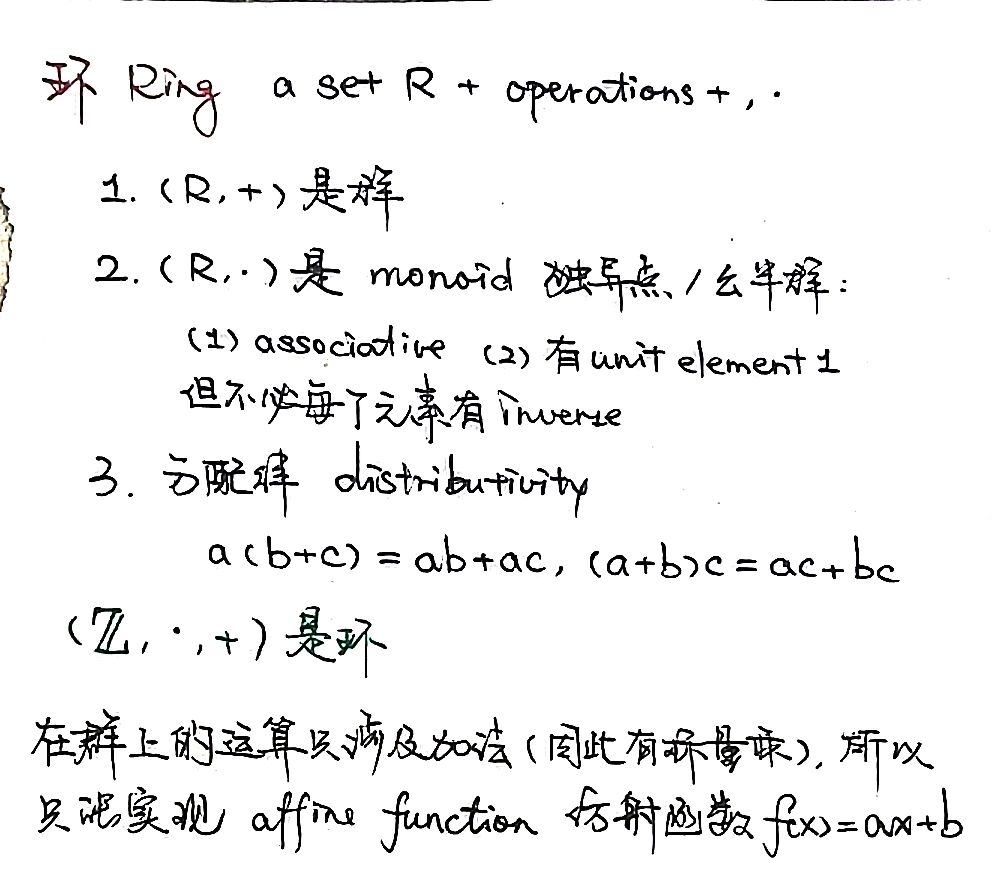 环 Ring a set R + operations +, ·
1. (R, +) 是群
2. (R, ·) 是 monoid 独异点 / 幺半群:
(1) associative (2) 有 unit element 1
但不必每个元素有 inverse
3. 分配律 distributivity
a(b+c) = ab+ac, (a+b)c = ac+bc
(ℤ, ·, +) 是环
在群上的运算只涉及加法 (因此有标量乘), 所以
只能实现 affine function 仿射函数 f(x)=ax+b